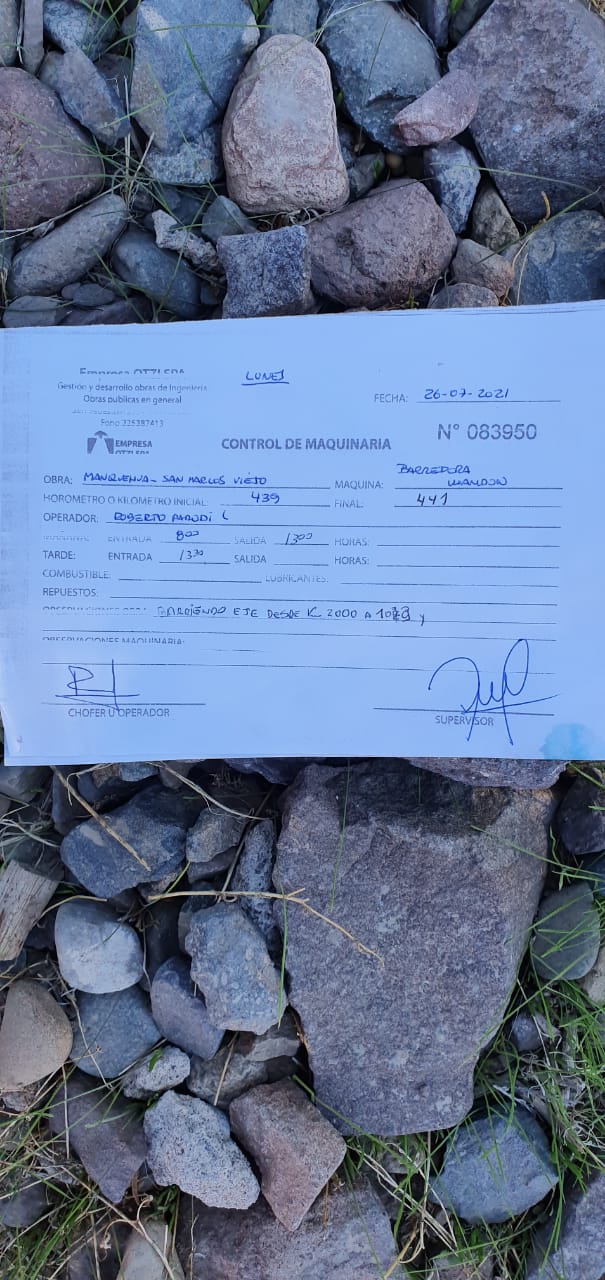 Empresa OTZI SPA
LUNES
Gestión y desarrollo obras de Ingeniería
Obras publicas en general
FECHA: 26-07-2021
Fono 225387413
EMPRESA
CONTROL DE MAQUINARIA
N° 083950
OBRA: MANQUEHUA - SAN MARCOS VIEJO
MAQUINA: BARREDORA
HOROMETRO O KILOMETRO INICIAL: 439 FINAL: 441
OPERADOR: ROBERTO PARODI L
MAÑANA: ENTRADA 800 SALIDA 1300 HORAS:
TARDE: ENTRADA 1330 SALIDA HORAS:
COMBUSTIBLE: LUBRICANTES:
REPUESTOS:
BARRIENDO EJE DESDE K 2000 A
OBSERVACIONES MAQUINARIA:
CHOFER U OPERADOR
SUPERVISOR